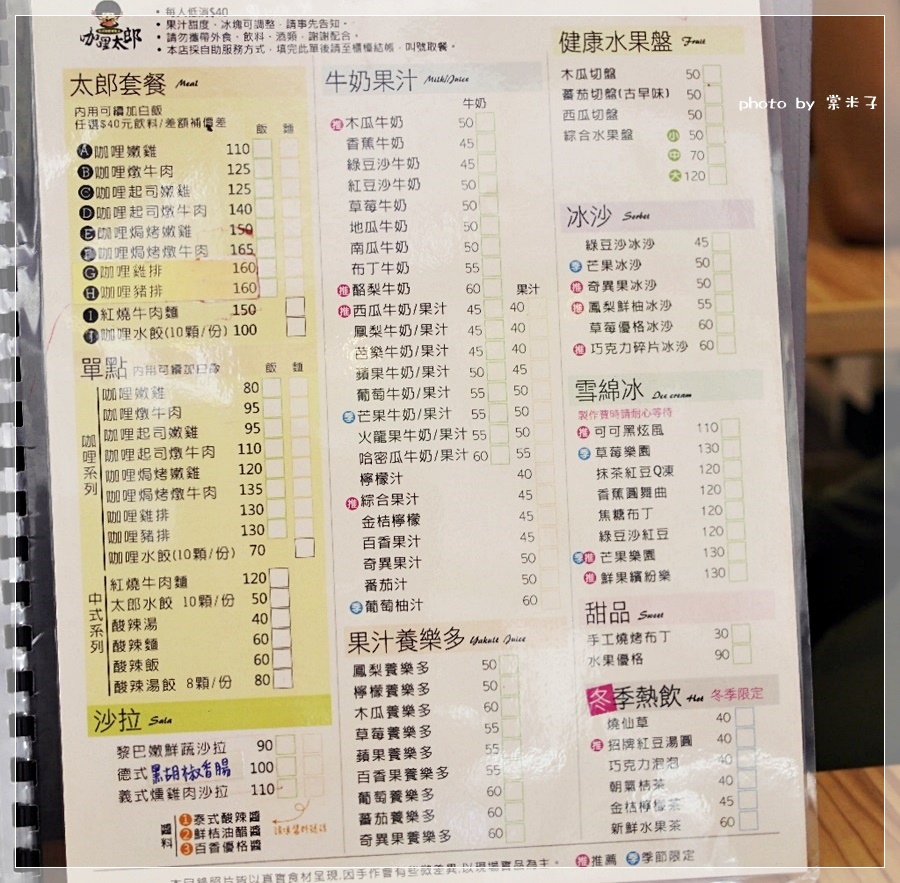 咖哩太郎
• 每人低消$40
• 果汁甜度、冰塊可調整，請事先告知。
• 請勿攜帶外食、飲料、酒類，謝謝配合。
• 本店採自助服務方式，填完此單後請至櫃檯結帳，叫號取餐。
太郎套餐 Meal
內用可續加白飯
任選$40元飲料/差額補價差
飯 麵
A 咖哩嫩雞 110
B 咖哩燉牛肉 125
C 咖哩起司嫩雞 125
D 咖哩起司燉牛肉 140
E 咖哩焗烤嫩雞 150
F 咖哩焗烤燉牛肉 165
G 咖哩雞排 160
H 咖哩豬排 160
I 紅燒牛肉麵 150
咖哩水餃(10顆/份) 100
單點 內用可續加白飯 飯 麵
咖哩系列
咖哩嫩雞 80
咖哩燉牛肉 95
咖哩起司嫩雞 95
咖哩起司燉牛肉 110
咖哩焗烤嫩雞 120
咖哩焗烤燉牛肉 135
咖哩雞排 130
咖哩豬排 130
咖哩水餃(10顆/份) 70
中式系列
紅燒牛肉麵 120
太郎水餃 10顆/份 50
酸辣湯 40
酸辣麵 60
酸辣飯 60
酸辣湯餃 8顆/份 80
沙拉 Sala
黎巴嫩鮮蔬沙拉 90
德式黑胡椒香腸 100
義式燻雞肉沙拉 110
醬料
1 泰式酸辣醬
2 鮮桔油醋醬
3 百香優格醬
牛奶果汁 Milk/Juice
牛奶
推 木瓜牛奶 50
香蕉牛奶 45
綠豆沙牛奶 45
紅豆沙牛奶 50
草莓牛奶 50
地瓜牛奶 50
南瓜牛奶 50
布丁牛奶 55
推 酪梨牛奶 60 果汁
推 西瓜牛奶/果汁 45 40
鳳梨牛奶/果汁 45 40
芭樂牛奶/果汁 45 40
蘋果牛奶/果汁 50 45
葡萄牛奶/果汁 55 50
季 芒果牛奶/果汁 55 50
火龍果牛奶/果汁 55 50
哈密瓜牛奶/果汁 60 55
檸檬汁 40
推 綜合果汁 45
金桔檸檬 45
百香果汁 45
奇異果汁 50
蕃茄汁 50
季 葡萄柚汁 60
果汁養樂多 Yakult Juice
鳳梨養樂多 50
檸檬養樂多 50
木瓜養樂多 55
草莓養樂多 55
蘋果養樂多 55
百香果養樂多 55
葡萄養樂多 60
蕃茄養樂多 60
奇異果養樂多 60
健康水果盤 Fruit
木瓜切盤 50
蕃茄切盤(古早味) 50
西瓜切盤 50
綜合水果盤 小 50
中 70
大 120
photo by 棠米子
冰沙 Sorbet
綠豆沙冰沙 45
季 芒果冰沙 50
推 奇異果冰沙 50
推 鳳梨鮮柚冰沙 55
草莓優格冰沙 60
推 巧克力碎片冰沙 60
雪綿冰 Ice cream
製作費時請耐心等待
推 可可黑炫風 110
季 草莓樂園 130
抹茶紅豆Q凍 120
香蕉圓舞曲 120
焦糖布丁 120
綠豆沙紅豆 120
季 推 芒果樂園 130
推 鮮果繽紛樂 130
甜品 Sweet
手工燒烤布丁 30
水果優格 90
冬季熱飲 Hot 冬季限定
燒仙草 40
推 招牌紅豆湯圓 40
巧克力泡泡 40
朝氣桔茶 40
金桔檸檬茶 45
新鮮水果茶 60
推 推薦 季 季節限定
本目錄照片皆以真實食材呈現,因手作會有些微差異,以現場實品為主。